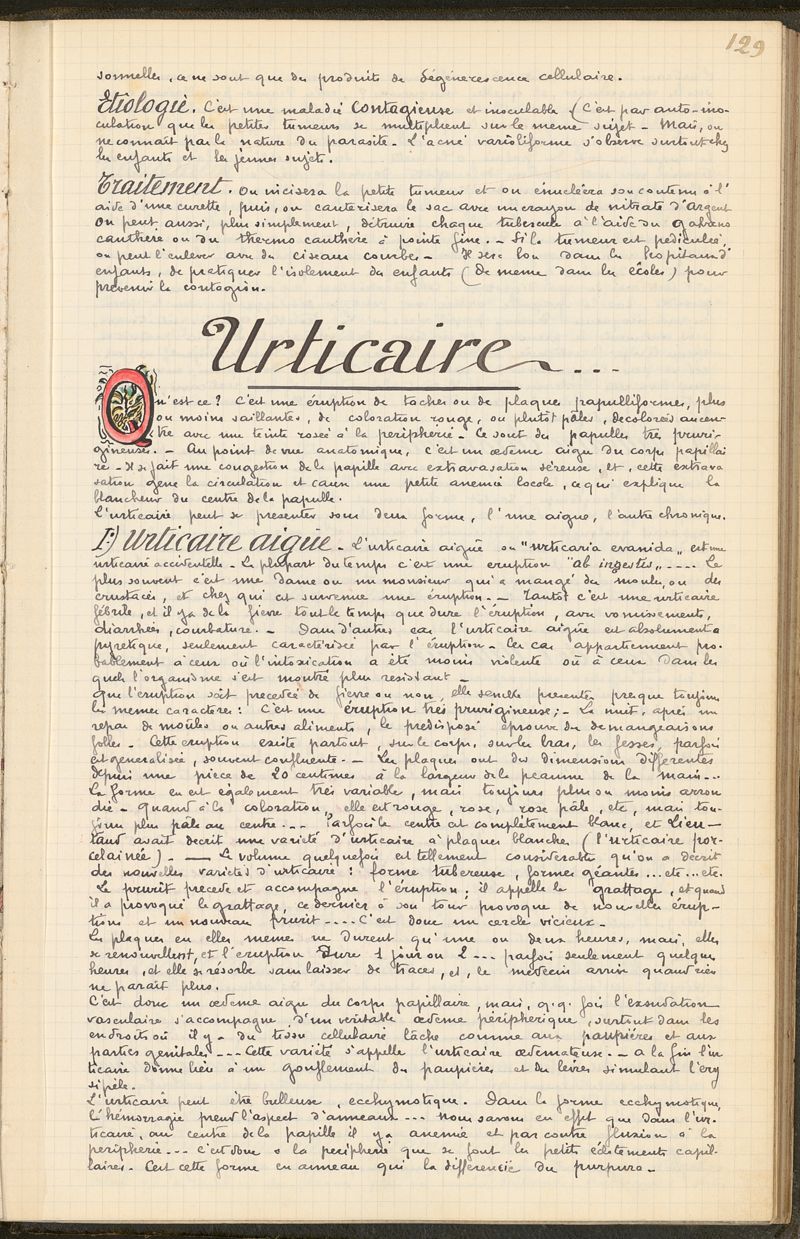 129
sonnelles, ce ne sont que des produits de dégénerescence cellulaire.
Etiologie. C'est une maladie contagieuse et inoculable (C'est par auto-ino-
culation que les petites tumeurs se multiplient sur le meme sujet - Mais, on
ne connait pas la nature du parasite. L'acné varioliforme s'observe surtout chez
les enfants et les jeunes sujets.
Traitement. On incisera la petite tumeur et on énucléera son contenu à l'
aide d'une curette, puis, on cautérisera le sac avec un crayon de nitrate d'argent
On peut aussi, plus simplement, détruire chaque tubercule à l'aide du galvano
cauthère ou du thermo cauthère à pointe fine. - Si la tumeur est pediculée,
on peut l'enlever avec des ciseaux courbes - Il sera bon dans les hopitaux d'
enfants, de pratiquer l'isolement des enfants (De meme dans les écoles) pour
prévenir la contagion.
Urticaire...
Qu'est ce? C'est une éruption de taches ou de plaques papulliformes, plus
ou moins saillantes, de coloration rouge, ou plutôt pâles, decolorées au cen-
tre avec une teinte rosée à la peripherie - Ce sont des papulles très pruri-
gineuses. - Au point de vue anatomique, c'est un œdeme aigu du corps papillai
re - Il se fait une congestion de la papille avec extravasation séreuse, et, cette extrava
sation gene la circulation et cause une petite anemie locale, ce qui explique la
blancheur du centre de la papulle.
L'urticaire peut se presenter sous deux forme, l'une aigue, l'autre chronique.
I) Urticaire aigüe - L'urticaire aigüe ou "urticaria evanida" est une
urticaire accidentelle - La plupart du temps c'est une eruption "ab ingestis" .... Le
plus souvent c'est une dame ou un monsieur qui a mangé des moules, ou des
crustacés, et chez qui est survenue une éruption. - Tantot c'est une urticaire
fébrile, et il y a de la fievre tout le temps que dure l'éruption, avec vomissements,
diarrhées, courbature. - Dans d'autres cas l'urticaire aigüe est absolument a
pyretique, seulement caractérisée par l'éruption - Ces cas appartiennent pro-
bablement à ceux où l'intoxication a été moins violente où à ceux dans les
quels l'organisme s'est montré plus resistant -
Que l'eruption soit precedée de fievre ou non, elle semble presenter presque toujours
les memes caractères: C'est une éruption très prurigineuse; - La nuit, après un
repas de moules ou autres aliments, le prédisposé éprouve des demangeaisons
folles - Cette eruption existe partout, sur le corps, sur les bras, les fesses, parfois
est generalisée, souvent confluente. - Les plaques ont des dimensions différentes
depuis une piece de 20 centimes à la largeur de la peaume de la main...
La forme en est également très variable, mais toujours plus ou moins arron
die - Quand à la coloration, elle est rouge, rose, rose pâle, etc, mais tou-
jours plus pâle au centre... Parfois le centre est complètement blanc, et Lieu-
taud avait decrit une varieté d'urticaire à plaques blanches (l'urticaire por-
celainée). - Le volume quelquefois est tellement considerable qu'on a décrit
des nouvelles varietés d'urticaire: forme tubereuse, formes géantes ...etc...etc.
Le prurit precede et accompagne l'éruption; il appelle le grattage, et quand
il a provoqué le grattage, ce dernier à son tour provoque de nouvelles érup-
tions et un nouveau prurit .... C'est donc un cercle vicieux -
Les plaques en elles memes ne durent qu'une ou deux heures, mais, elles
se renouvellent, et l'eruption dure 1 jour ou 2 ... parfois seulement quelques
heures, et elle se résorbe sans laisser de traces, et, le médecin arrive quand rien
ne parait plus.
C'est donc un œdeme aigu du corps papillaire, mais, q.q. fois l'exsudation
vasculaire s'accompagne d'un veritable œdeme périphérique, surtout dans les
endroits où il y a du tissu cellulaire lâche comme aux paupières et aux
parties genitales... Cette variété s'appelle l'urticaire œdemateuse. - a la fin l'ur
ticaire donne lieu à un gonflement des paupières et des lèvres simulant l'ery
sipèle.
L'urticaire peut être bulleuse, ecchymotique. Dans la forme ecchymotique,
l'hémorragie prend l'aspect d'anneaux... Nous savons en effet que dans l'ur-
ticaire, au centre de la papille il y a anemie et par contre fluxion à la
peripherie... C'est donc à la peripherie que se font les petits éclatements capil-
laires. C'est cette forme en anneau qui la differencie du purpura -